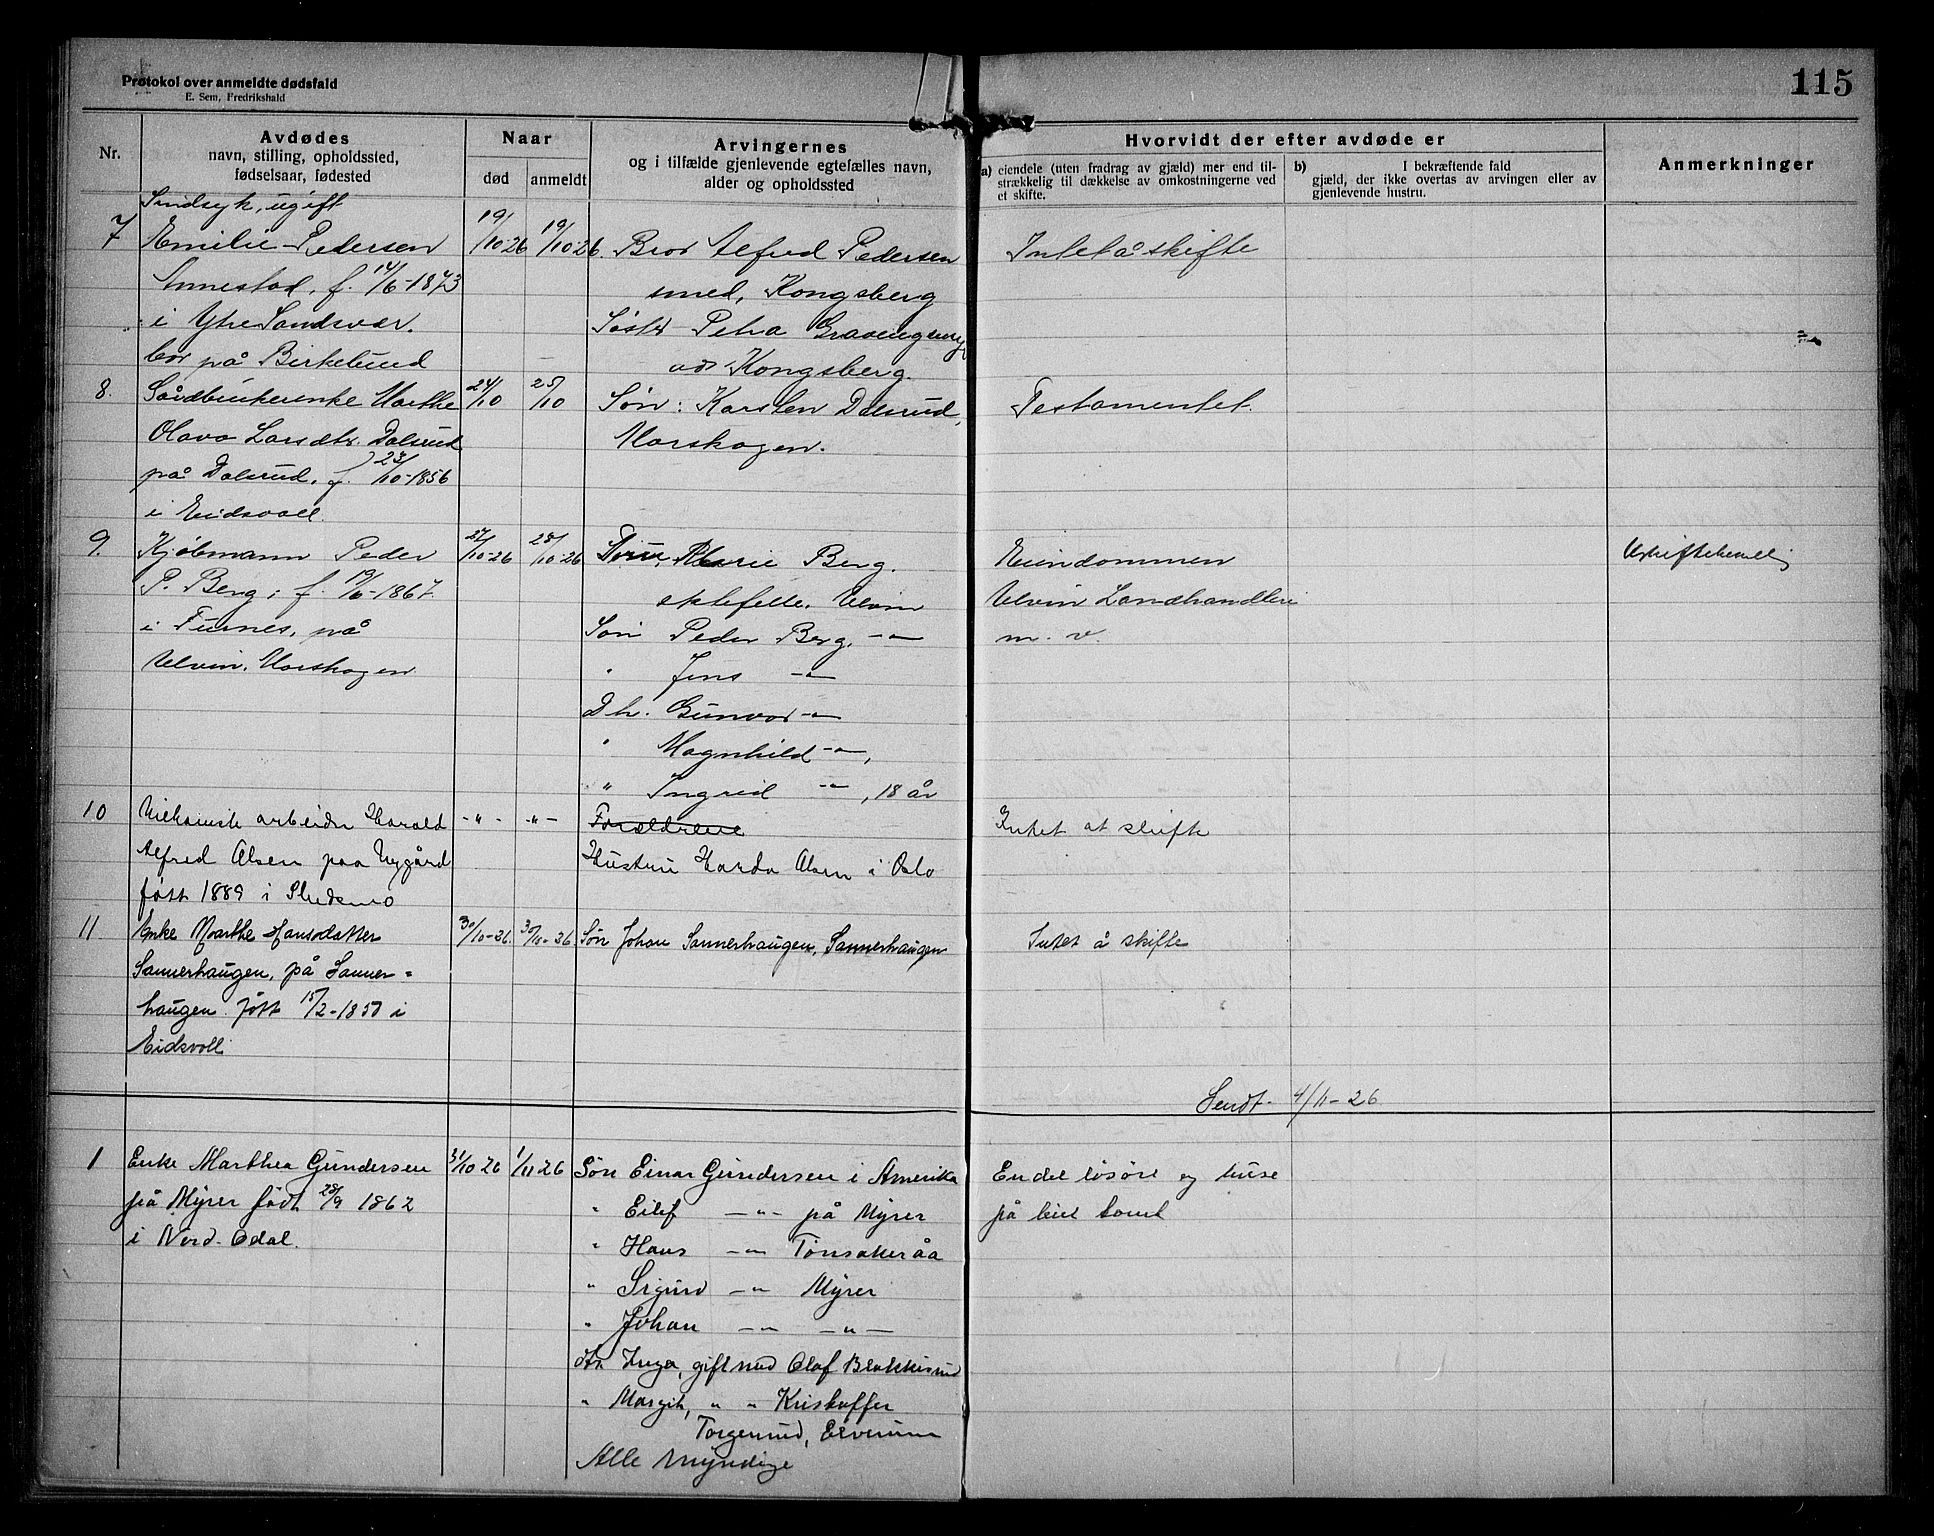 Protokol over anmeldte dødsfald
E. Sem, Fredrikshald
115
Nr.
Avdødes
navn, stilling, opholdssted,
fødselsaar, fødested
Naar
død
anmeldt
Arvingernes
og i tilfælde gjenlevende egtefælles navn,
alder og opholdssted
Hvorvidt der efter avdøde er
a) eiendele (uten fradrag av gjæld) mer end til-
strækkelig til dækkelse av omkostningerne ved
et skifte.
b) I bekræftende fald
gjæld, der ikke overtas av arvingen eller av
gjenlevende hustru.
Anmerkninger
Sindsyk, ugift
7 Emilie Pedersen 19/10 26 19/10 26. Bror Alfred Pedersen Intet å skifte
f. 14/6-1873 smed, Kongsberg
i Ytre Sandsvær. Søster Petra
bor på Birkelund Kongsberg.
8. Marthe 24/10 25/10 Søn: Karsten Dalsrud, Testamentet.
Olava Larsdtr. Dalsrud Morskogen.
på Dalsrud, f. 23/10-1856
i Eidsvoll
9. Kjøbmann Peder 27/10-26 28/10-26 Marie Berg. Eiendommen Uskiftebevilling
P. Berg, f. 19/6-1867 ektefelle, Ulvin Ulvin Landhandleri
i Furnes, på Søn Peder Berg, -"- m. v.
Ulvin, Morskogen " Jens -"-
Dtr. Gunvor -"-
" Magnhild -"-,
" Ingrid -"-, 18 år
10 Mekanisk arbeider Harald -"- -"- Forældrene Intet at skifte
Alfred Olsen paa Nygård Hustru Olsen i Oslo
født 1889 i Skedsmo
11 Enke Marthe Hansdatter 30/10-26 30/10-26 Søn Johan Sannerhaugen, Sannerhaugen Intet å skifte
Sannerhaugen, på Sanner-
haugen. født 15/2-1850 i
Eidsvoll
Sendt 4/11-26
1 Enke Marthea Gundersen 31/10 26 1/11 26 Søn Einar Gundersen i Amerika En del løsøre og huse
på Myrer født 28/9 1862 " Eilef -"- på Myrer på leiet tomt
i Nord-Odal. " Hans -"- Tønsakeråa
" Sigurd -"- Myrer
" Johan -"- -"-
dtr Inga, gift med Olaf
" Margit, " " Kristoffer
Torgerrud, Elverum
Alle myndige